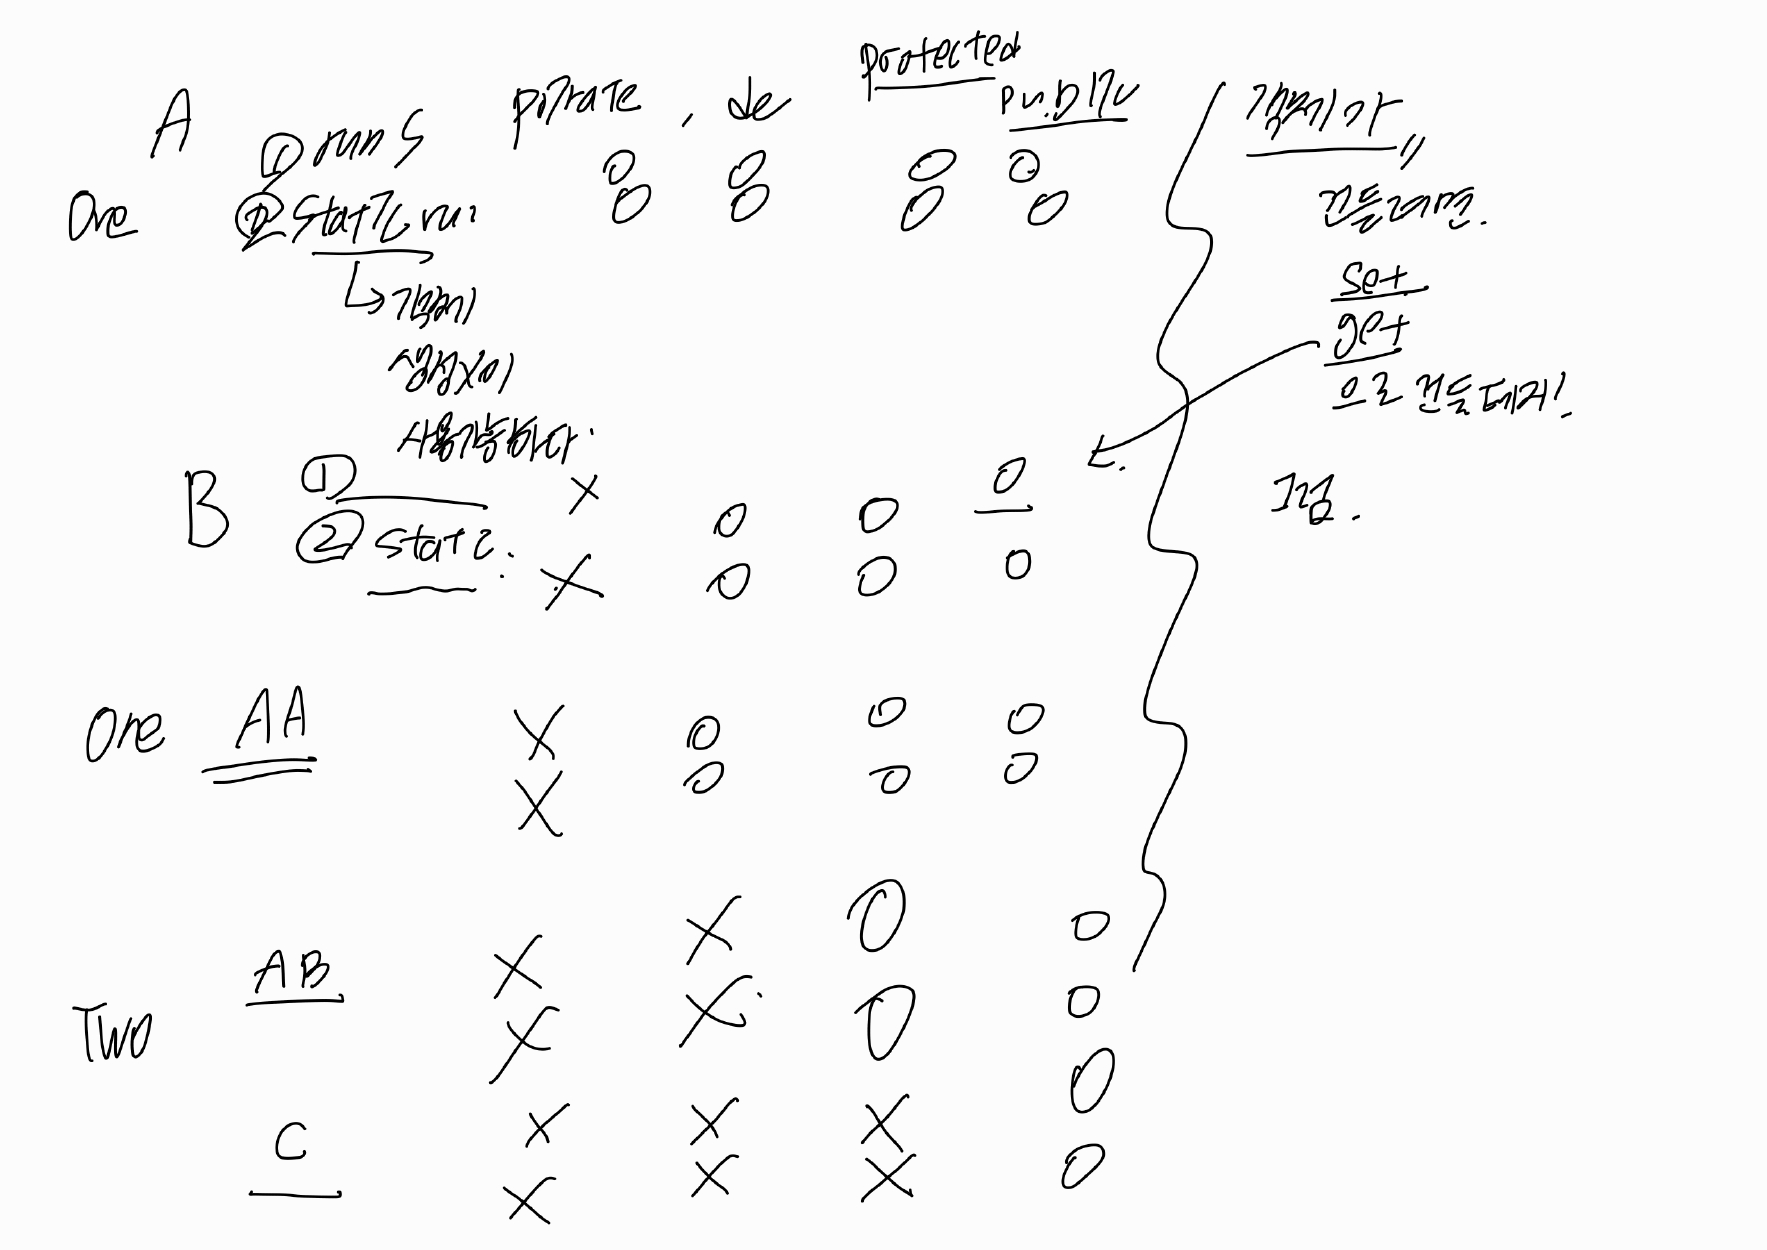 A private, de protected public
① run S O O O O
One ② static run O O O O
↳ 객체
생성X이
사용가능하다.
객체가
건들려면.
set
get
으로 건들테지!
그럼.
B ① X O O O
② static. X O O O
One AA X O O O
X O O O
AB X X O O
Two X X O O
C X X X O
X X X O